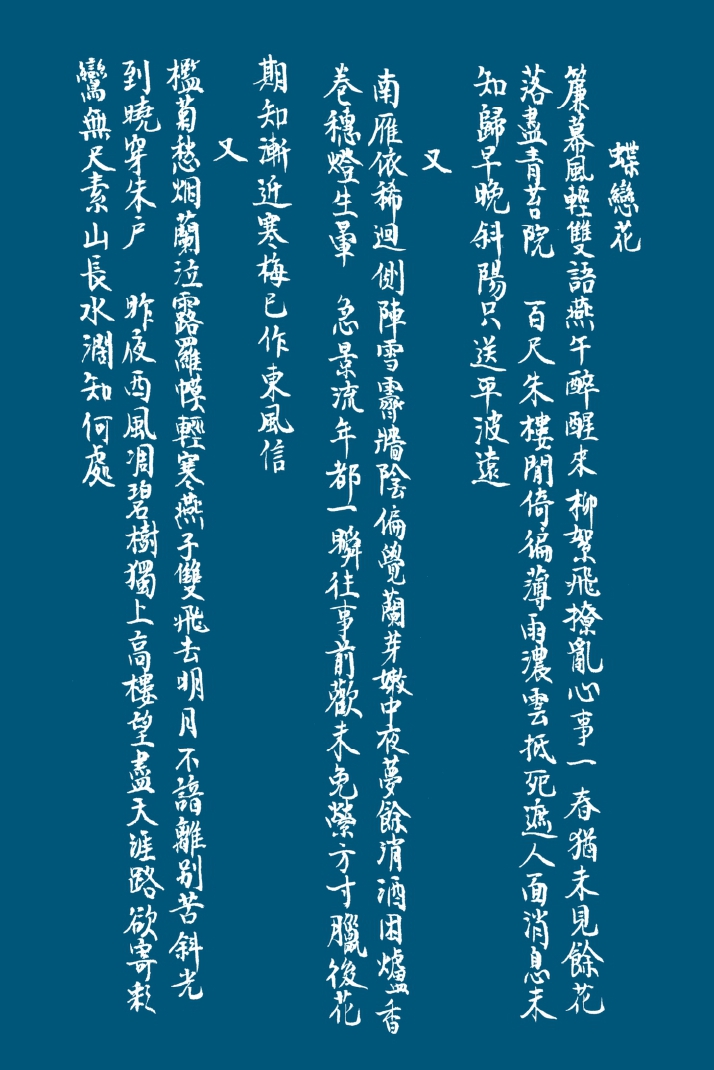 蝶戀花
簾幕風輕雙語燕午醉醒來柳絮飛撩亂心事一春猶未見餘花
落盡青苔院　百尺朱樓閒倚徧薄雨濃雲抵死遮人面消息未
知歸早晚斜陽只送平波遠
又
南雁依稀迴側陣雪霽牆陰偏覺蘭芽嫩中夜夢餘消酒困爐香
卷穗燈生暈　急景流年都一瞬往事前歡未免縈方寸臘後花
期知漸近寒梅已作東風信
又
檻菊愁烟蘭泣露羅幙輕寒燕子雙飛去明月不諳離別苦斜光
到曉穿朱戶　昨夜西風凋碧樹獨上高樓望盡天涯路欲寄彩
鸞無尺素山長水濶知何處